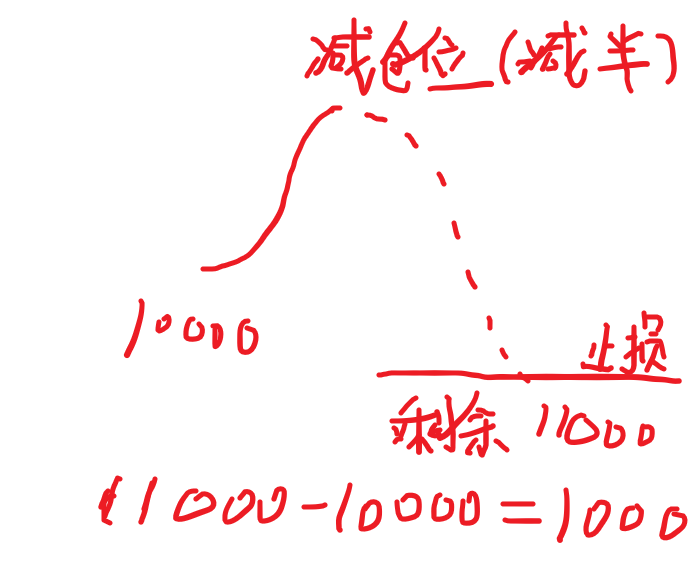 减仓位(减半)
10000
止损
剩余 11000
11000-10000=1000